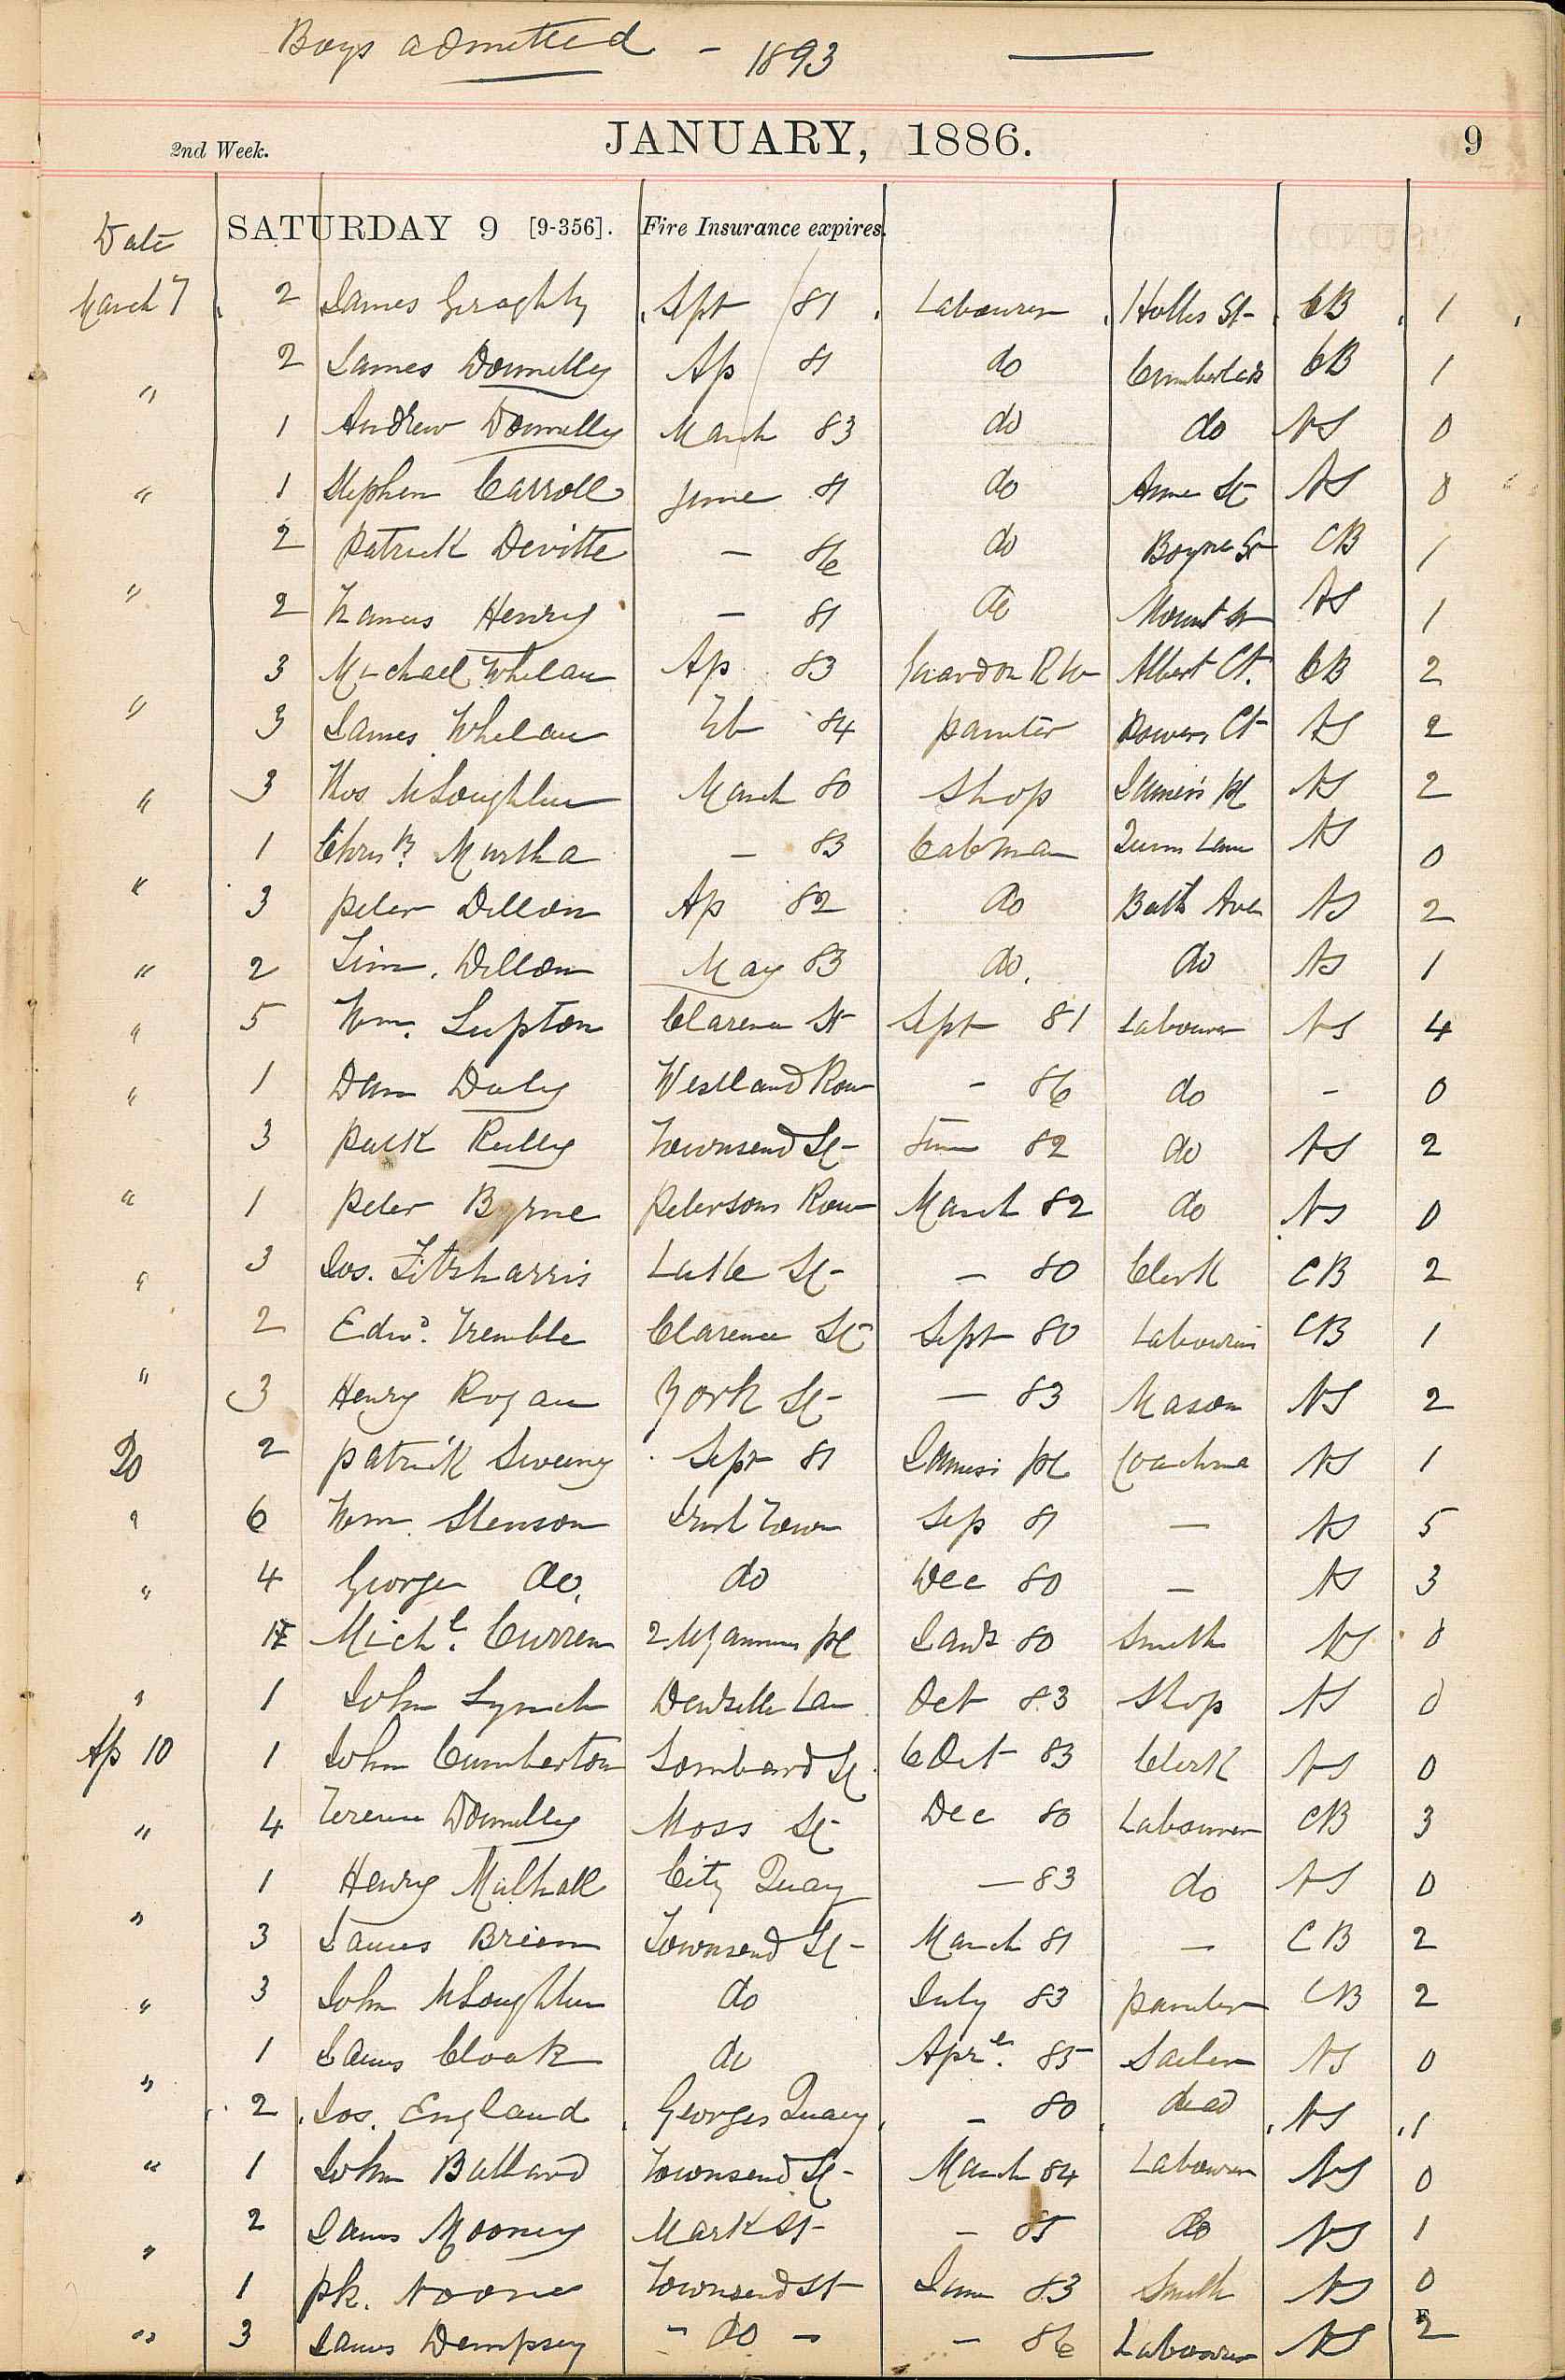 Boys admitted - 1893
2nd Week. JANUARY, 1886. 9
Date SATURDAY 9 [9-356]. Fire Insurance expires.
March 7 2 James Geraghty Sept 81 Labourer Holles St CB 1
2 James Donnelly Ap 81 do Cumberland CB 1
" 1 Andrew Donnelly March 83 do do NS 0
" 1 Stephen Carroll June 81 do Anne St NS 0
2 Patrick Devitte - 86 do Boyne St CB 1
" 2 Francis Henry - 81 do Mount St NS 1
3 Michael Whelan Ap 83 Guard on R W Albert Ct. CB 2
" 3 James Whelan Feb 84 painter Powers Ct NS 2
" 3 Thos McLoughlin March 80 Shop James's pl NS 2
1 Chrisr. Murtha - 83 Cabman Quinns Lane NS 0
" 3 peter Dillon Ap 82 do Bath Ave NS 2
" 2 Tim. Dillon May 83 do. do NS 1
" 5 Wm. Lupton Clarence St Sept 81 Labourer NS 4
" 1 Dan Daly Westland Row - 86 do - 0
3 patk Reilly Townsend St- June 82 do NS 2
" 1 peter Byrne petersons Row March 82 do NS 0
" 3 Jos. Fitzharris Luke St- - 80 Clerk CB 2
2 Edwd. Tremble Clarence St- Sept 80 Labourer CB 1
" 3 Henry Rogan York St- - 83 Mason NS 2
Do 2 patrick Sweeny Sept 81 James's pl Coachman NS 1
" 6 Wm Stenson Irish Town Sep 81 - NS 5
" 4 George do. do Dec 80 - NS 3
1 Michl. Curren 2 pl Jany 80 Smith NS 0
" 1 John Lynch Denzille Lan Oct 83 Shop NS 0
Ap 10 1 John Cumberton Lombard St 6 Oct 83 Clerk NS 0
" 4 Terence Donnelly Moss St- Dec 80 Labourer CB 3
1 Henry Mulhall City Quay - 83 do NS 0
" 3 James Brien Townsend St- March 81 - CB 2
" 3 John McLoughlin do July 83 painter CB 2
1 James Cloak do Aprl. 85 Sailor NS 0
" 2 Jos. England Georges Quay - 80 dead NS 1
" 1 John Bullard Townsend St- March 84 Labourer NS 0
2 James Mooney Mark St- - 85 do NS 1
" 1 pk. Noone Townsend St June 83 Smith NS 0
" 3 James Dempsey - do - - 86 Labourer NS 2